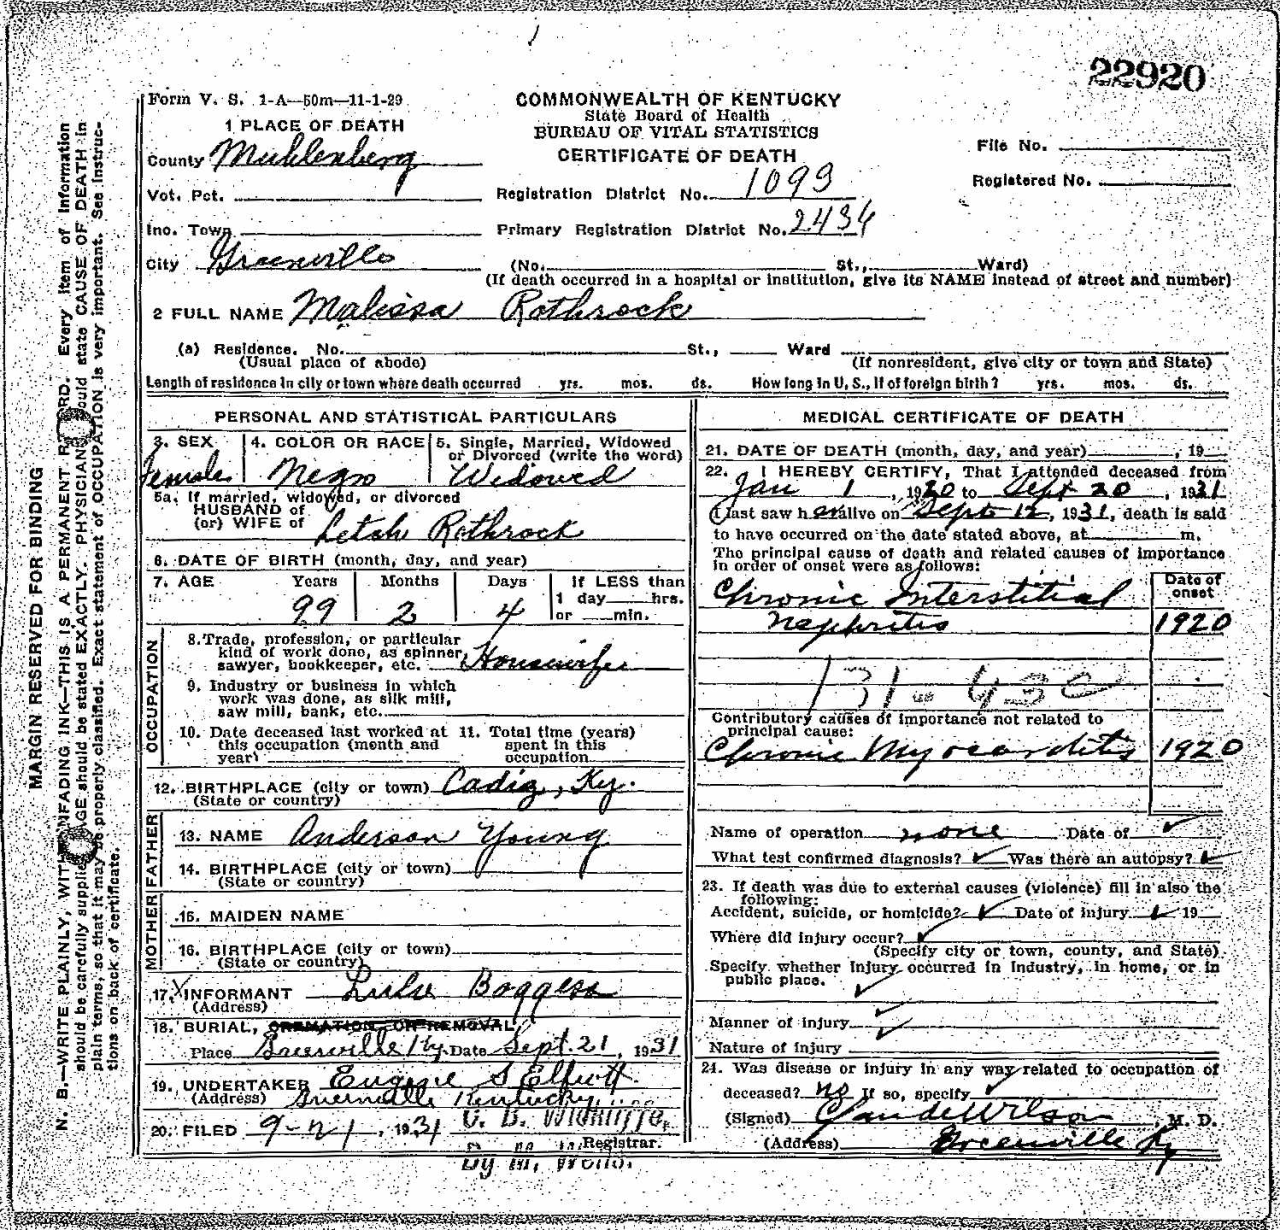 22920
Form V. S. 1-A—50m—11-1-29
COMMONWEALTH OF KENTUCKY
State Board of Health
BUREAU OF VITAL STATISTICS
CERTIFICATE OF DEATH
1 PLACE OF DEATH
County Muhlenberg
Vot. Pct.
Inc. Town
City Greenville
File No.
Registered No.
Registration District No. 1093
Primary Registration District No. 2434
(No. St., Ward)
(If death occurred in a hospital or institution, give its NAME instead of street and number)
2 FULL NAME Malissa Rothrock
(a) Residence. No. St., Ward
(Usual place of abode) (If nonresident, give city or town and State)
Length of residence in city or town where death occurred yrs. mos. ds. How long in U. S., if of foreign birth? yrs. mos. ds.
PERSONAL AND STATISTICAL PARTICULARS
3. SEX 4. COLOR OR RACE 5. Single, Married, Widowed
or Divorced (write the word)
Female Negro Widowed
5a. If married, widowed, or divorced
HUSBAND of
(or) WIFE of Letch Rothrock
6. DATE OF BIRTH (month, day, and year)
7. AGE Years Months Days If LESS than
1 day hrs.
99 2 4 or min.
OCCUPATION
8. Trade, profession, or particular
kind of work done, as spinner,
sawyer, bookkeeper, etc. Housewife
9. Industry or business in which
work was done, as silk mill,
saw mill, bank, etc.
10. Date deceased last worked at 11. Total time (years)
this occupation (month and spent in this
year) occupation
12. BIRTHPLACE (city or town) Cadiz, Ky.
(State or country)
FATHER
13. NAME Anderson Young
14. BIRTHPLACE (city or town)
(State or country)
MOTHER
15. MAIDEN NAME
16. BIRTHPLACE (city or town)
(State or country)
17. X INFORMANT Lulu Boggess
(Address)
18. BURIAL, CREMATION, OR REMOVAL
Place Greenville Ky. Date Sept. 21, 1931
19. UNDERTAKER Eugene S
(Address) Greenville Kentucky
20. FILED 9-21, 1931 C. B. Wickliffe,
Registrar.
By M. Wolid.
MEDICAL CERTIFICATE OF DEATH
21. DATE OF DEATH (month, day, and year) , 19
22. I HEREBY CERTIFY, That I attended deceased from
Jan 1, 1920 to Sept 20, 1931
I last saw her alive on Sept 12, 1931, death is said
to have occurred on the date stated above, at m.
The principal cause of death and related causes of importance
in order of onset were as follows:
Date of
onset
Chronic Interstitial
nephritis 1920
131-43c
Contributory causes of importance not related to
principal cause:
Chronic Myocarditis 1920
Name of operation none Date of ✓
What test confirmed diagnosis? ✓ Was there an autopsy? ✓
23. If death was due to external causes (violence) fill in also the
following:
Accident, suicide, or homicide? ✓ Date of injury ✓ 19
Where did injury occur? ✓
(Specify city or town, county, and State)
Specify whether injury occurred in industry, in home, or in
public place. ✓
Manner of injury ✓
Nature of injury ✓
24. Was disease or injury in any way related to occupation of
deceased? no If so, specify ✓
(Signed) Claude Wilson, M. D.
(Address) Greenville Ky
MARGIN RESERVED FOR BINDING
N. B.—WRITE PLAINLY, WITH UNFADING INK—THIS IS A PERMANENT RECORD. Every item of information
should be carefully supplied. AGE should be stated EXACTLY. PHYSICIANS should state CAUSE OF DEATH in
plain terms, so that it may be properly classified. Exact statement of OCCUPATION is very important. See instruc-
tions on back of certificate.